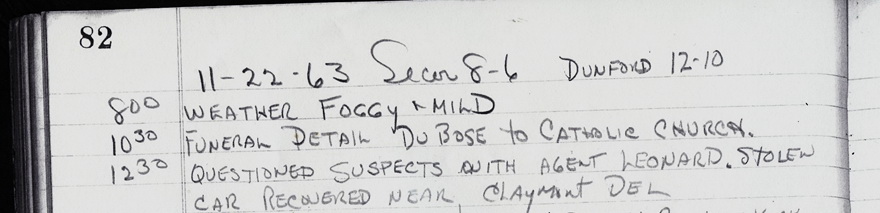 82
11-22-63 Secor 8-6 DUNFORD 12-10
800 WEATHER FOGGY & MILD
1030 FUNERAL DETAIL DU BOSE to CATHOLIC CHURCH.
1230 QUESTIONED SUSPECTS WITH AGENT LEONARD. STOLEN
CAR RECOVERED NEAR CLAYMONT DEL